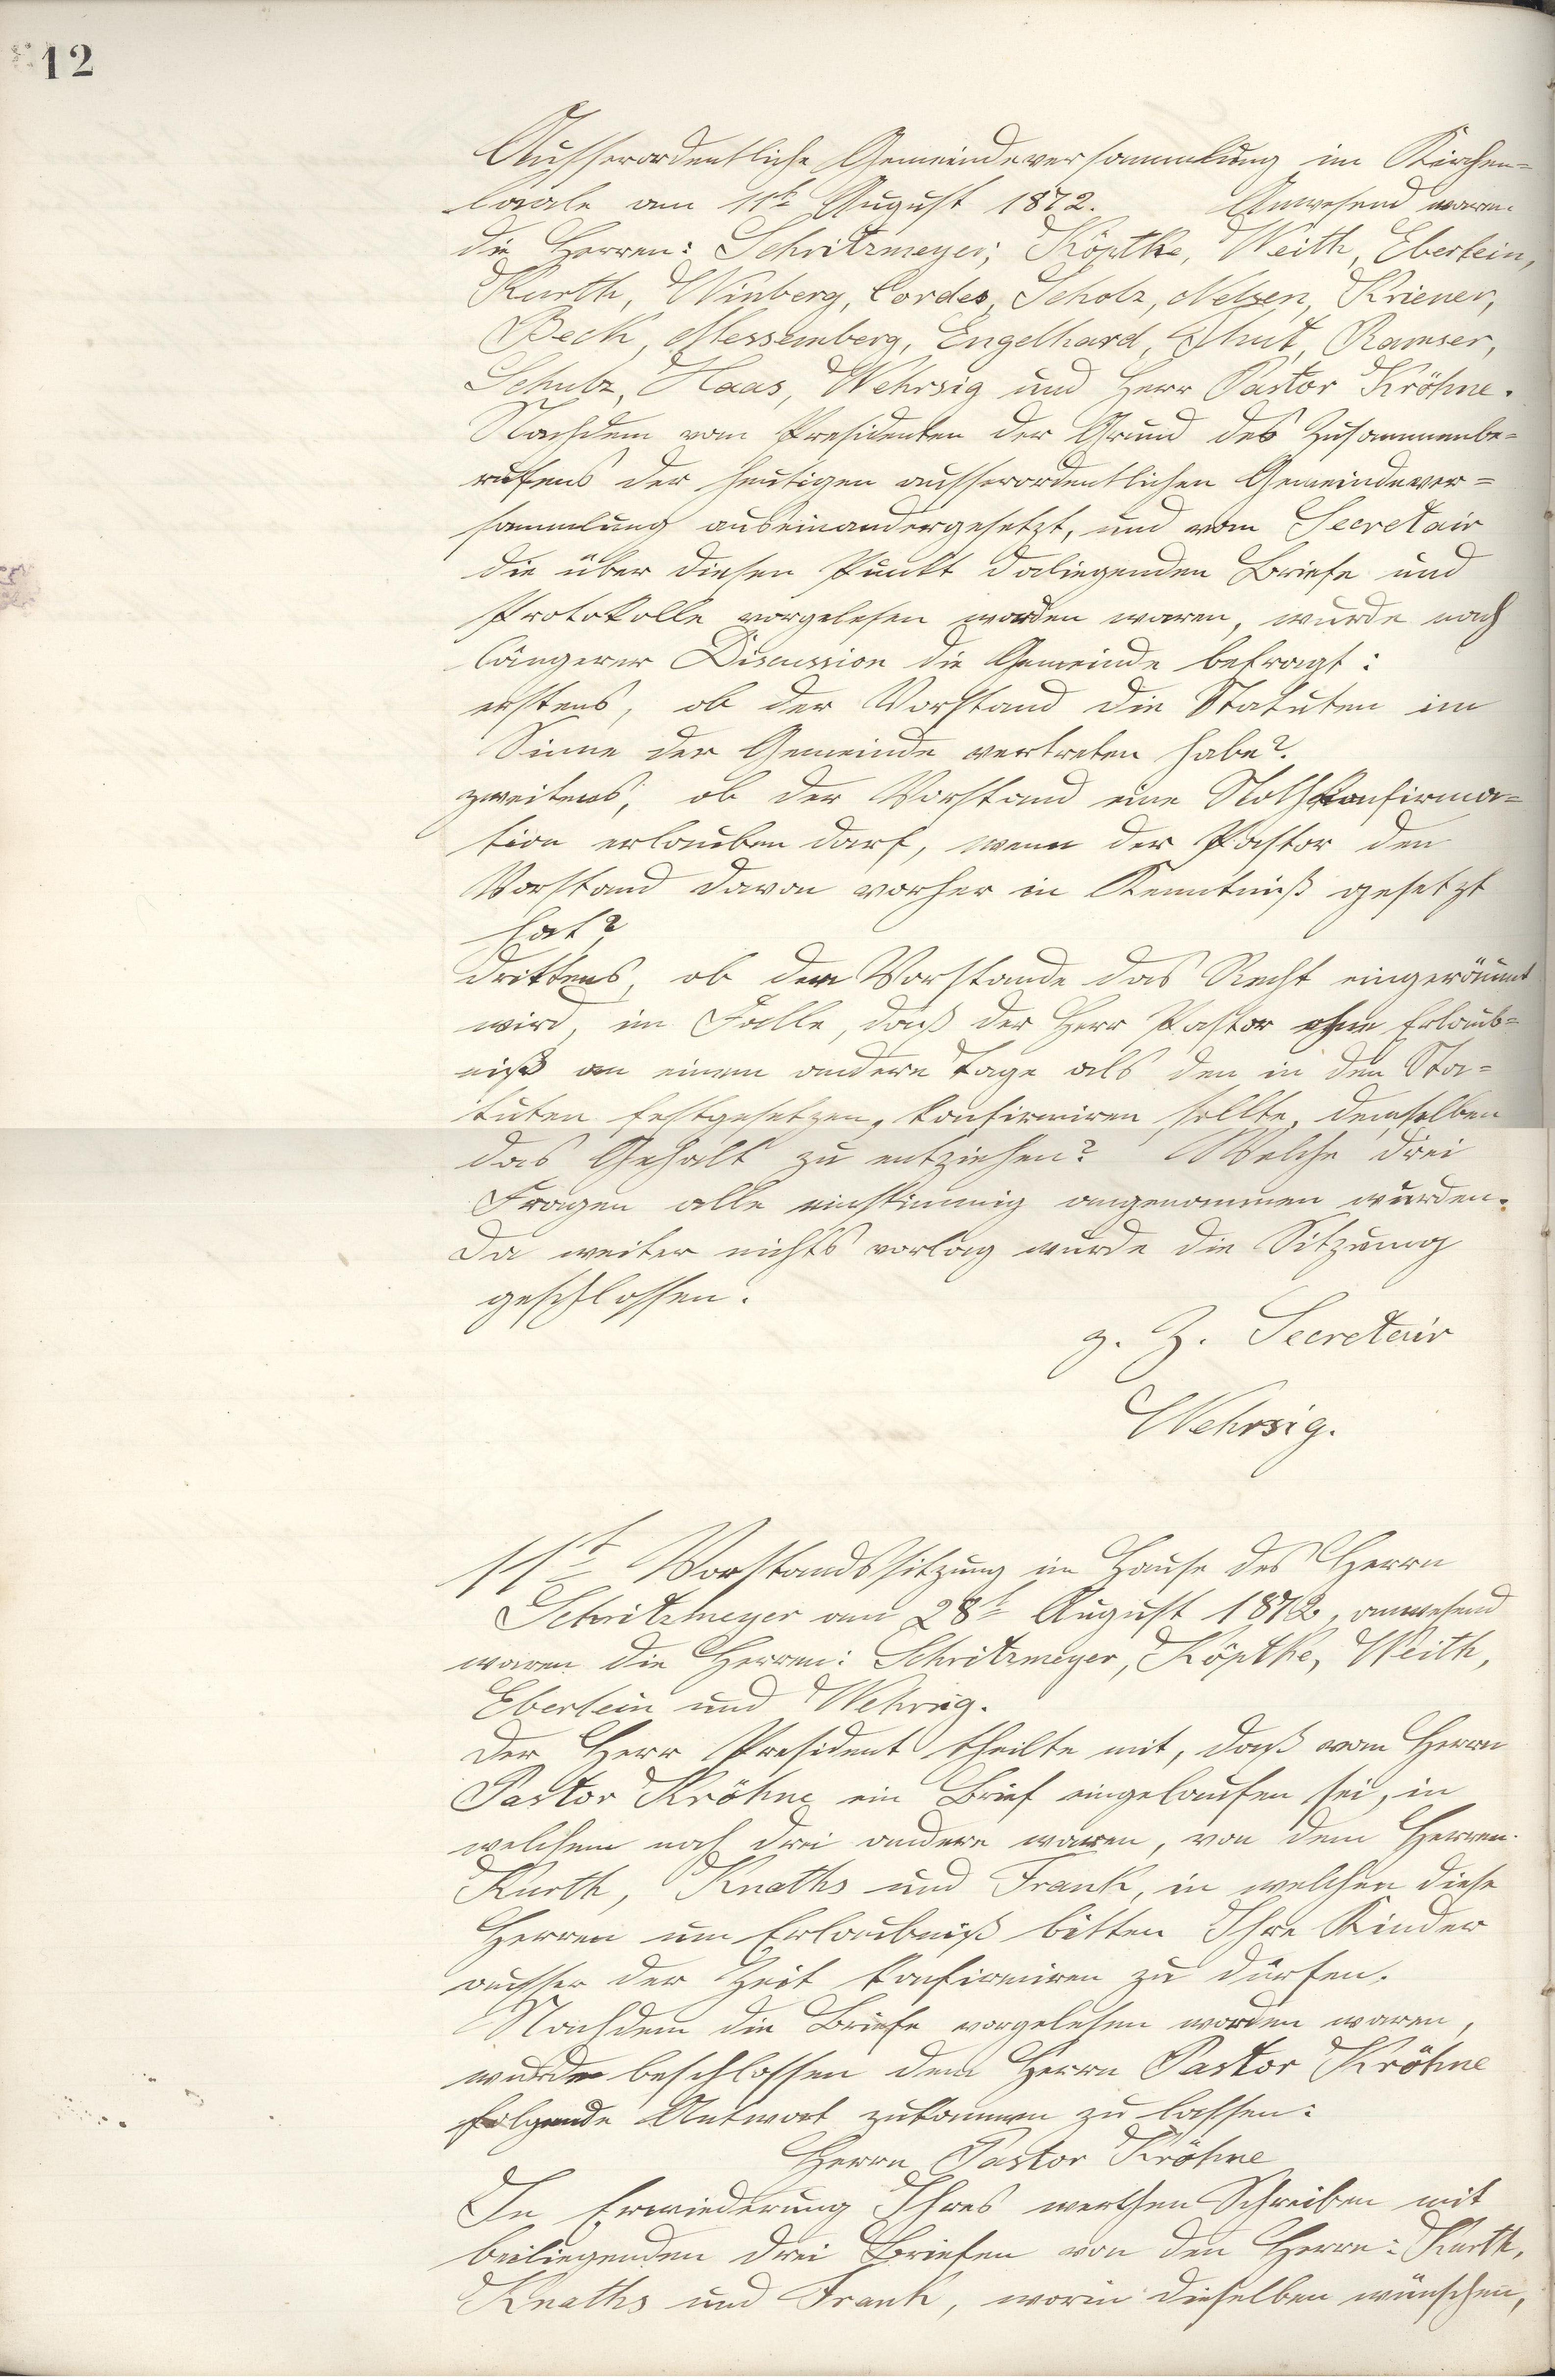 12
Ausserordentliche Gemeindeversammlung im Kirchen=
locale am 11t August 1872. Anwesend waren
die Herren: Schritzmeyer; Köptke, Weith, Eberlein,
Kurth, Winberg, Cordes, Scholz, Nelzen, Kriener,
Beck, Messemberg, Engelhard, Ramser,
Schulz, Haas, Wehrsig und Herr Pastor Kröhne.
Nachdem vom Presidenten der Grund des Zusammenbe=
rufens der heutigen ausserordentlichen Gemeindever=
sammlung auseinandergesetzt, und vom Secretair
die über diesen Punkt daliegenden Briefe und
Protokolle vorgelesen worden waren, wurde nach
längerer Discussion die Gemeinde befragt:
erstens, ob der Vorstand die Statuten im
Sinne der Gemeinde vertreten habe?.
zweitens, ob der Vorstand eine Nothkonfirma=
tion erlauben darf, wenn der Pastor den
Vorstand davon vorher in Kenntniß gesetzt
hat?
drittens, ob dem Vorstande das Recht eingeräumt
wird, im Falle, daß der Herr Pastor ohne Erlaub=
niß an einem andern Tage als den in den Sta=
tuten festgesetzen, konfirmiren sollte, demselben
das Gehalt zu entziehen? Welche drei
Fragen alle einstimmig angenommen wurden.
Da weiter nichts vorlag wurde die Sitzung
geschlossen.
z. Z. Secretair
Wehrsig.
11t Vorstandssitzung im Hause des Herrn
Schritzmeyer am 28t August 1872, anwesend
waren die Herren: Schritzmeyer, Köptke, Weith,
Eberlein und Wehrsig.
Der Herr President theilte mit, daß vom Herrn
Pastor Kröhne ein Brief eingelaufen sei, in
welchem noch drei andere waren, von dem Herren
Kurth, Knaths und Frank, in welchen diese
Herren um Erlaubniß bitten Ihre Kinder
ausser der Zeit konfirmiren zu dürfen.
Nachdem die Briefe vorgelesen worden waren,
wurde beschlossen dem Herrn Pastor Kröhne
folgende Antwort zukommen zu lassen:
Herrn Pastor Kröhne
In Erwiederung Ihres werthen Schreiben mit
beiliegenden drei Briefen von den Herrn: Kurth,
Knaths und Frank, worin dieselben wünschen,